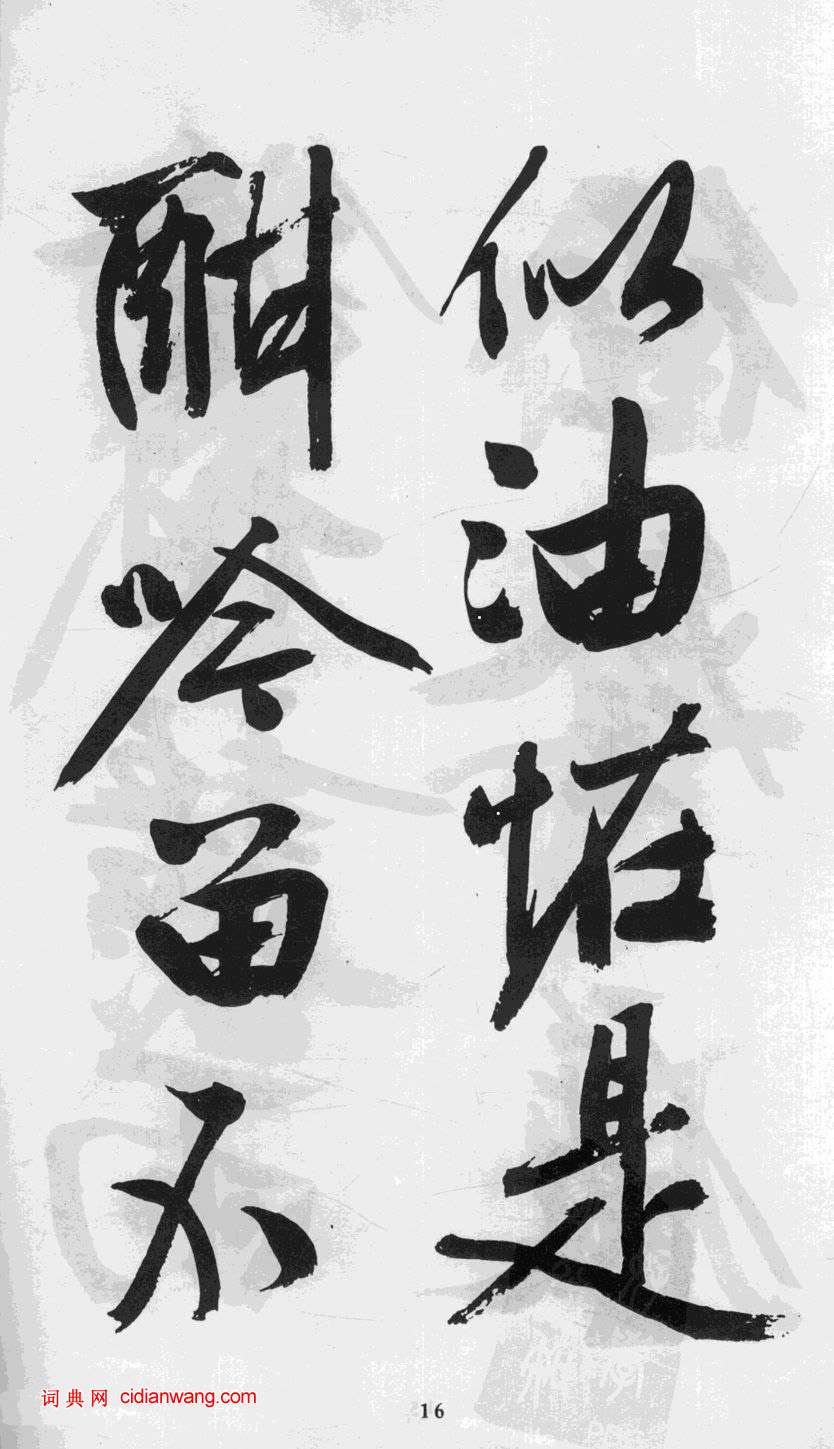 似油恠是
酣吟留不
词典网 cidianwang.com
16